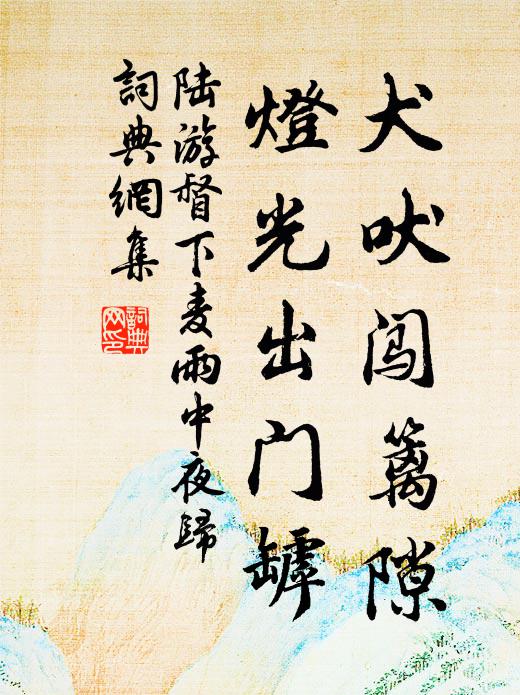 犬吠闯篱隙
燈光出门罅
陆游督下麦雨中夜歸
詞典網集
詞典网印